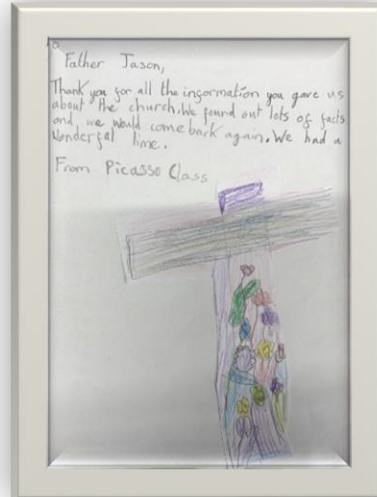 To
Father Jason,
Thank you for all the information you gave us
about the church. We found out lots of facts
and we would come back again. We had a
wonderful time.
From Picasso Class